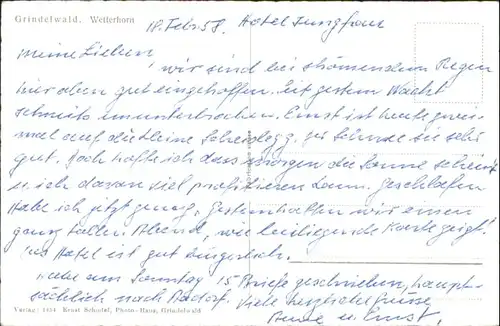 Grindelwald, Wetterhorn
18. Febr. 58. Hotel Jungfrau
Meine Lieben,
wir sind bei strömendem Regen
hier oben gut eingetroffen. Seit gestern Nacht
schneits ununterbrochen. Ernst ist heute zwei-
mal auf die kleine Scheidegg, der Schnee sei sehr
gut. Doch hoffe ich dass morgen die Sonne scheint
u. ich davon viel profitieren kann. Geschlafen
habe ich jetzt genug. Gestern hatten wir einen
ganz tollen Abend, wie beiliegende Karte zeigt.
Das Hotel ist gut
Habe am Sonntag 15 Briefe geschrieben, haupt-
sächlich nach Viele herzliche Grüsse
u. Ernst.
Verlag: 1884 Ernst Schudel, Photo-Haus, Grindelwald